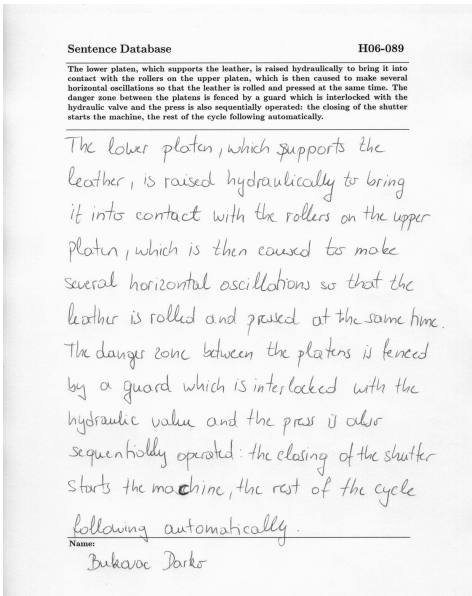 Sentence Database H06-089
The lower platen, which supports the leather, is raised hydraulically to bring it into
contact with the rollers on the upper platen, which is then caused to make several
horizontal oscillations so that the leather is rolled and pressed at the same time. The
danger zone between the platens is fenced by a guard which is interlocked with the
hydraulic valve and the press is also sequentially operated: the closing of the shutter
starts the machine, the rest of the cycle following automatically.
The lower platen, which supports the
leather, is raised hydraulically to bring
it into contact with the rollers on the upper
platen, which is then caused to make
several horizontal oscillations so that the
leather is rolled and pressed at the same time.
The danger zone between the platens is fenced
by a guard which is interlocked with the
hydraulic valve and the press is also
sequentially operated: the closing of the shutter
starts the machine, the rest of the cycle
following automatically.
Name:
Bukovac Darko